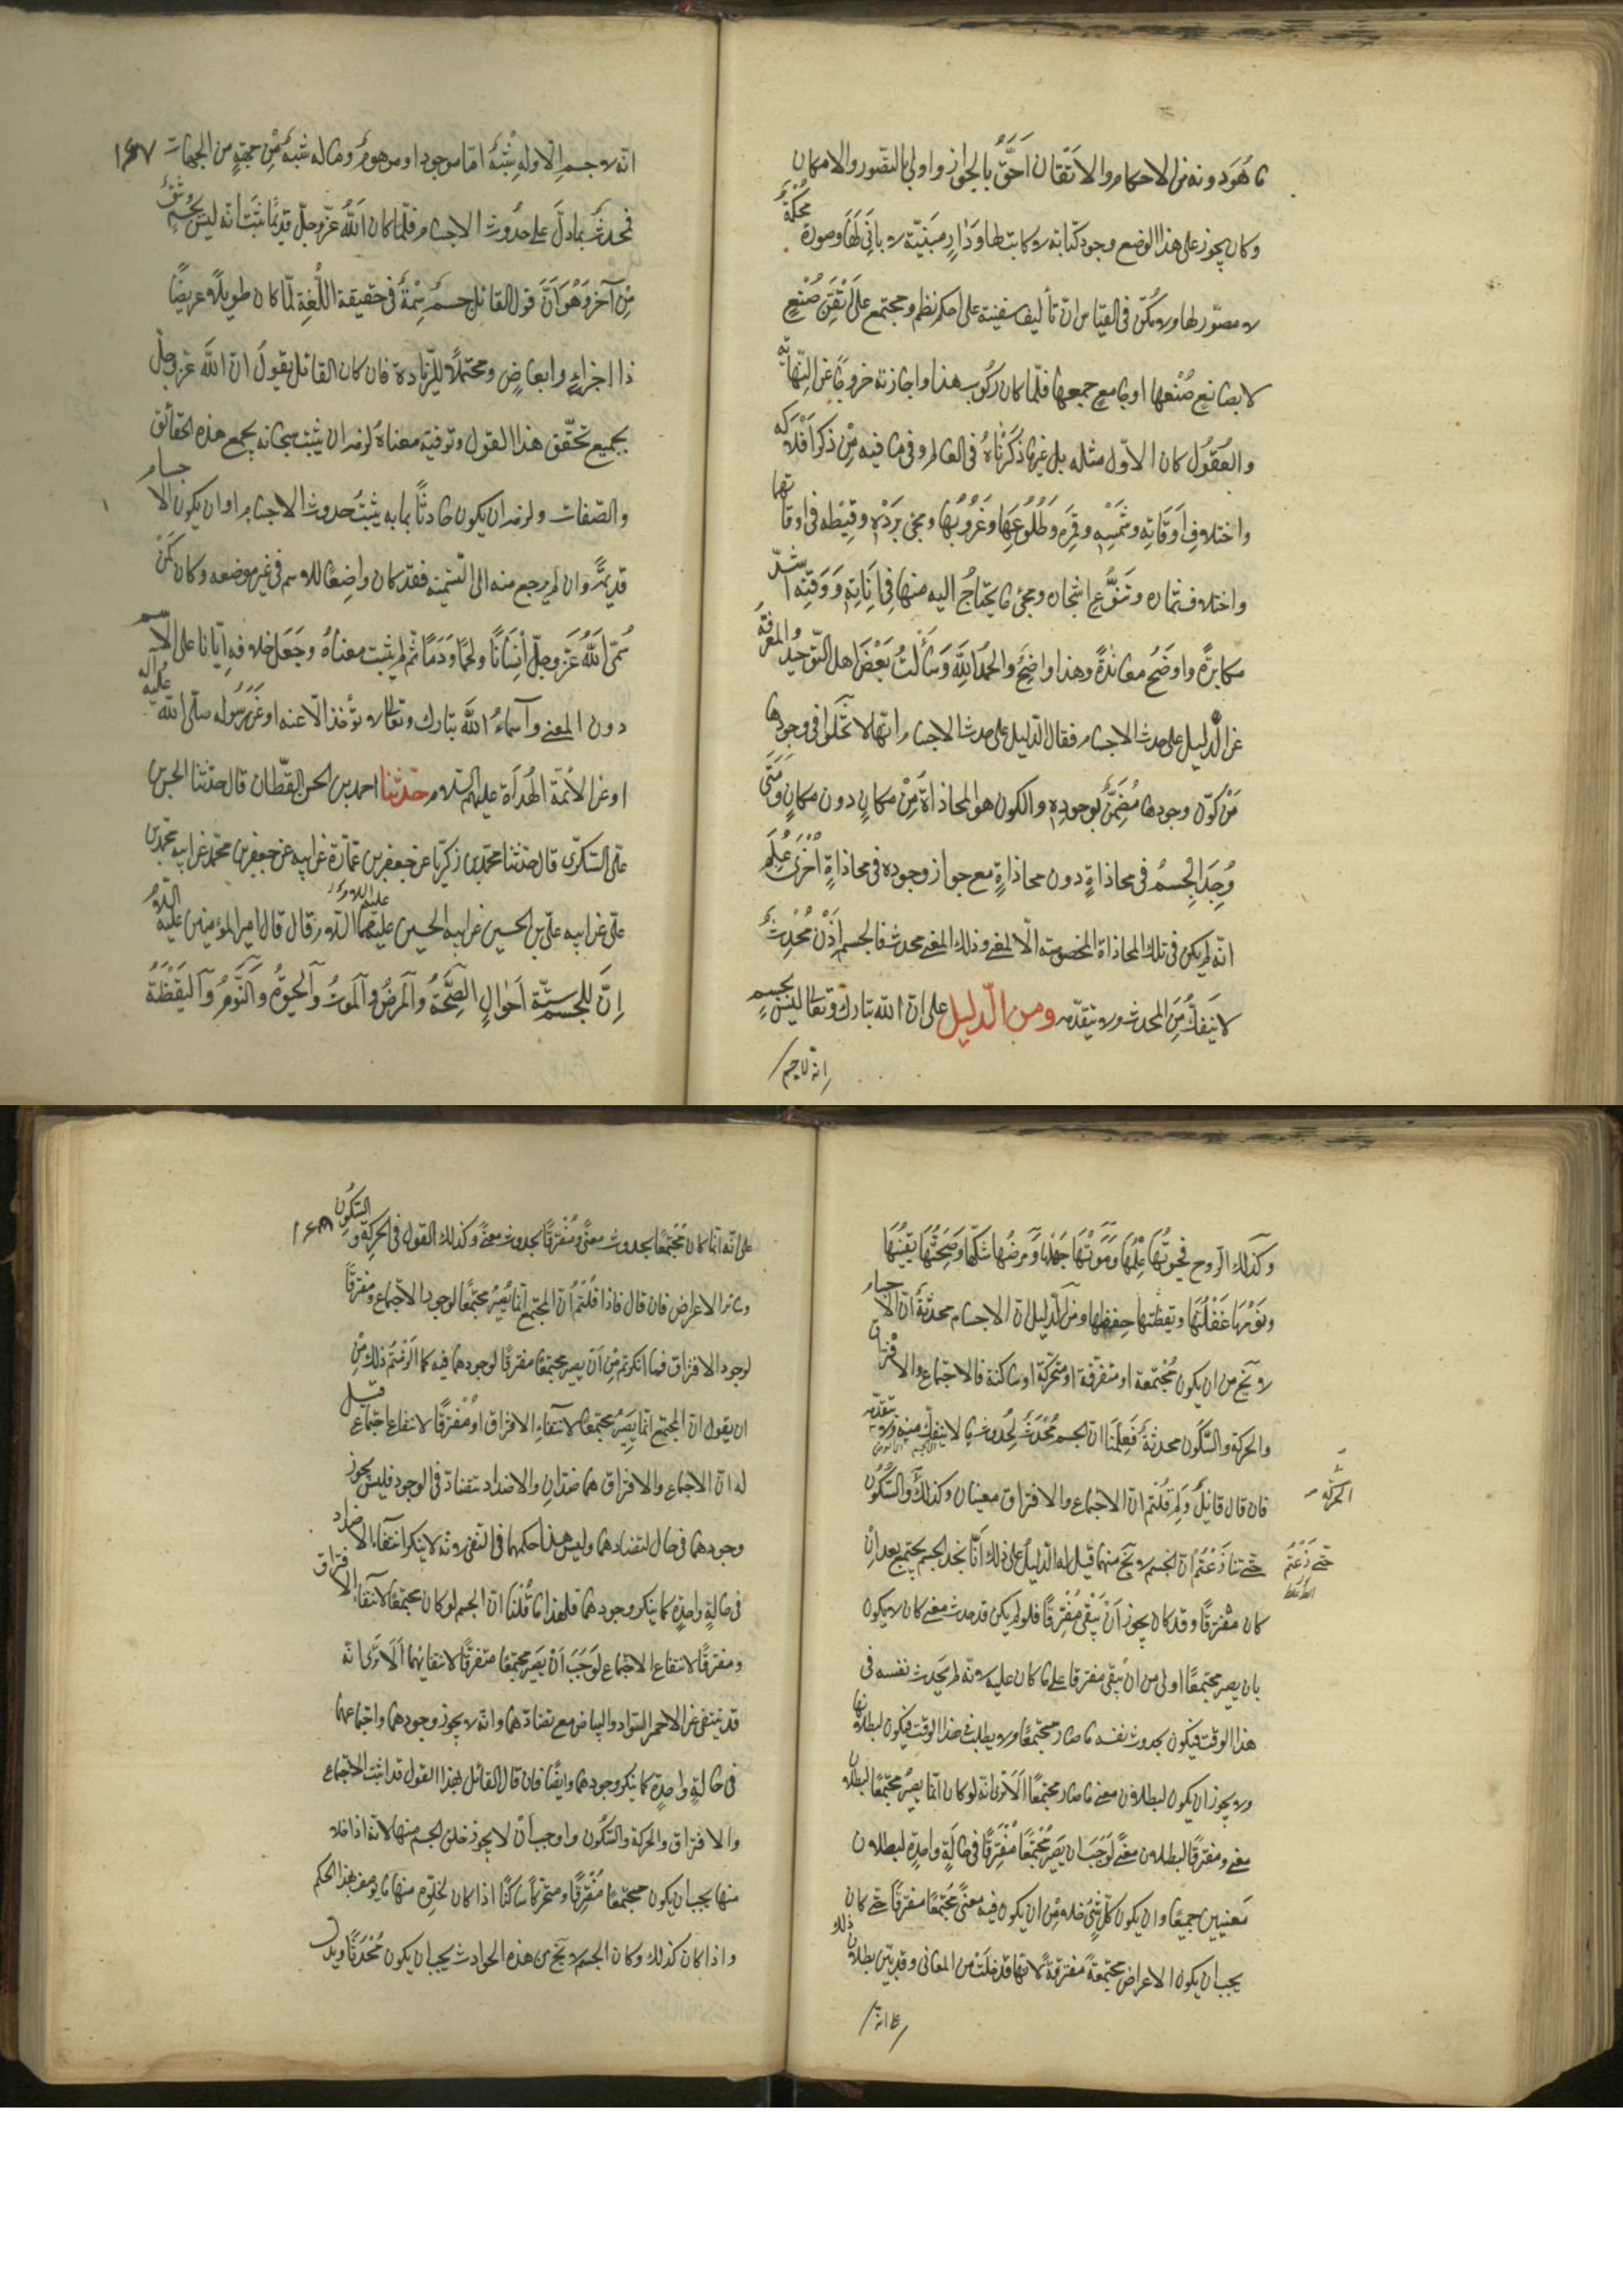 ما هو دونه من الاحكام والاتقان احقّ بالجواز واولى بالتصّور والامكان
وكان يجوز على هذا الوضع وجود كتابة لا كاتب لها ودار مبنيّة لا بانى لها وصورة محكمة
لا مصوّر لها ولا يمكن فى القياس ان تأتلف سفينة على احكم نظم وتجتمع على اتقن صنع
لا بصانع صنعها او جامع جمعها فلمّا كان ركوب هذا واجازته خروجا عن النّهاية
والعقول كان الاوّل مثله بل غير ما ذكرناه فى العالم وفى ما فيه من ذكر افلاكه
واختلاف اوقاته وشمسه وقمره وطلوعها وغروبها ومجى برده وقيظه فى اوقاتها
واختلاف ثماره وتنوّع اشجاره ومجى ما يحتاج اليه منها فى اناته ووقته اشدّ
مكابرة واوضح معاندة وهذا واضح والحمد لله وسألت بعض اهل التوحيد والمعرفة
عن الدّليل على حدث الاجسام فقال الدّليل على حدث الاجسام انّها لا تخلوا فى وجودها
من كون وجودها مضمن بوجوده والكون هو المحاذاة من مكان دون مكان ومتى
وجد الجسم فى محاذاة دون محاذاة مع جواز وجوده فى محاذاة اخرى علم
انّه لم يكن فى تلك المحاذاة المخصوصة الّا لمعنى وذلك المعنى محدث فالجسم اذن محدث
لا ينفك من المحدث ولا يتقدّمه ومن الدّليل على ان الله تبارك وتعالى ليس بجسم
انه لا جسم
انّه لا جسم الّا وله شبه امّا موجود او موهوم وما له شبه من جهة من الجهات ١٤٧
فمحدث بما دلّ على حدوث الاجسام فلمّا كان الله عزّ وجلّ قديما ثبت انّه ليس بجسم وشىء
من آخر وهو انّ قول القائل جسم سمة فى حقيقة اللّغة لما كان طويلا عريضا
ذا اجزاء وابعاض ومحتملا للزّيادة فان كان القائل يقول ان الله عز وجل
بجميع تحقّق هذا القول وتوفيته معناه لزمه ان يثبت سبحانه بجميع هذه الحقائق
والصّفات ولزمه ان يكون حادثا بما به يثبت حدوث الاجسام او ان يكون الاجسام
قديمة وان لم يرجع منه الى التسمية فقد كان واضعا للاسم فى غير موضعه وكان كمن
سمّى الله عز وجلّ انسانا ولحما ودما ثم لم يثبت معناه وجعل خلافه ايّانا على الاسم
دون المعنى وآسماء الله تبارك وتعالى لا تؤخذ الّا عنه او عن رسوله صلّى الله عليه وآله
او عن الائمّة الهداة عليهم السّلام حدّثنا احمد بن الحسن القطّان قال حدّثنا الحسن بن
علىّ السّكرّى قال حدّثنا محمّد بن زكريّا عن جعفر بن عمّارة عن ابيه عن جعفر بن محمّد عن ابيه محمّد بن
علّى عن ابيه علّى بن الحسين عن ابيه الحسين عليهما السّلام قال قال امير المؤمنين عليه السّلام
انّ للجسم ستّة احوال الصّحّة والمرض والموت والحيوة والنّوم واليقظة
وكذلك الرّوح فحيوتها علمها وموتها جهلها ومرضها شكّها وصحّتها يقينها
ونومها غفلتها ويقظتها حفظها ومن الدّليل ان الاجسام محدثة انّ الاجسام
لا تخ من ان يكون مجتمعة او متفرّقة او متحركة او ساكنة فالاجتماع والافتراق
والحركة والسّكون محدثة فعلمنا انّ الجسم محدث لحدوث ما لا ينفك منه ولا يتقدّمه
فان قال قائل ولم قلتم انّ الاجتماع والافتراق معنيان وكذلك والسّكون
الحركة
حتى زعمتم انّ الجسم لا يخ منهما قيل له الدّليل على ذلك انّا نجد الجسم يجتمع بعد ان
حتّى زعمتم
كان مفترقا وقد كان يجوز ان يبقى مفترقا فلو لم يكن قد حدث معنى كان لا يكون
بان يصير مجتمعا اولى من ان يبقى مفترقا على ما كان عليه لانّه لم يحدث نفسه فى
هذا الوقت فيكون بحدوث نفسه ما صار مجتمعا ولا يبطلت فى هذا الوقت فيكون لبطلانها
ولا يجوز ان يكون لبطلان معنى ما صار مجتمعا الا ترى انّه لو كان انّما يصير مجتمعا لبطلان
معنى ومفترقا لبطلان معنى لوجب ان يصير مجتمعا مفترقا فى حالة واحدة لبطلان
معنيين جميعا وان يكون كلّ شىء خلا من ان يكون فيه معنى مجتمعا مفترقا حتى كان
يجب ان يكون الاعراض مجتمعة مفترقة لانّها قد خلت من المعانى وقد تبيّن بطلان ذلك
على انّه
على انّه انّما كان مجتمعا لحدوث معنى ومفترقا لحدوث معنى وكذلك القول فى الحركة والسّكون ١٤٨
وسائر الاعراض فان قال فاذا قلتم انّ المجتمع انّما يصير مجتمعا لوجود الاجتماع ومفترقا
لوجود الافتراق فما انكرتم من ان يصير مجتمعا مفترقا لوجودهما فيه كما الزمتم ذلك من
ان يقول انّ المجتمع انّما يصير مجتمعا لانتفاء الافتراق او مفترقا لانتفاء اجتماع قيل
له انّ الاجتماع والافتراق هما ضدّان والاضداد تتضادّ فى الوجود فليس يجوز
وجودهما فى حال لتضادهما وليس هذا حكمهما فى النّفى لانّه لا ينكر انتفاء الاضداد
فى حالة واحدة كما ينكر وجودهما فلهذا ما قلنا انّ الجسم لو كان مجتمعا لانتفاء الافتراق
ومفترقا لانتفاع الاجتماع لوجب ان يصير مجتمعا متفرقا لانتفائهما الا ترى انّه
قد ينتفى عن الاحمر السّواد والبياض مع تضادّهما وانّه لا يجوز وجودهما واجتماعهما
فى حالة واحدة كما ينكر وجودهما وايضا فان قال القائل بهذا القول قد اثبت الاجتماع
والافتراق والحركة والسّكون واوجب ان لا يجوز خلوّ الجسم منها لانّه اذا خلا
منها يجب ان يكون مجتمعا مفترقا ومتحركا ساكنا اذا كان لخلوّه منها ما يوصف بهذا الحكم
واذا كان كذلك وكان الجسم لا يخ من هذه الحوادث يجب ان يكون محدثا ويدل